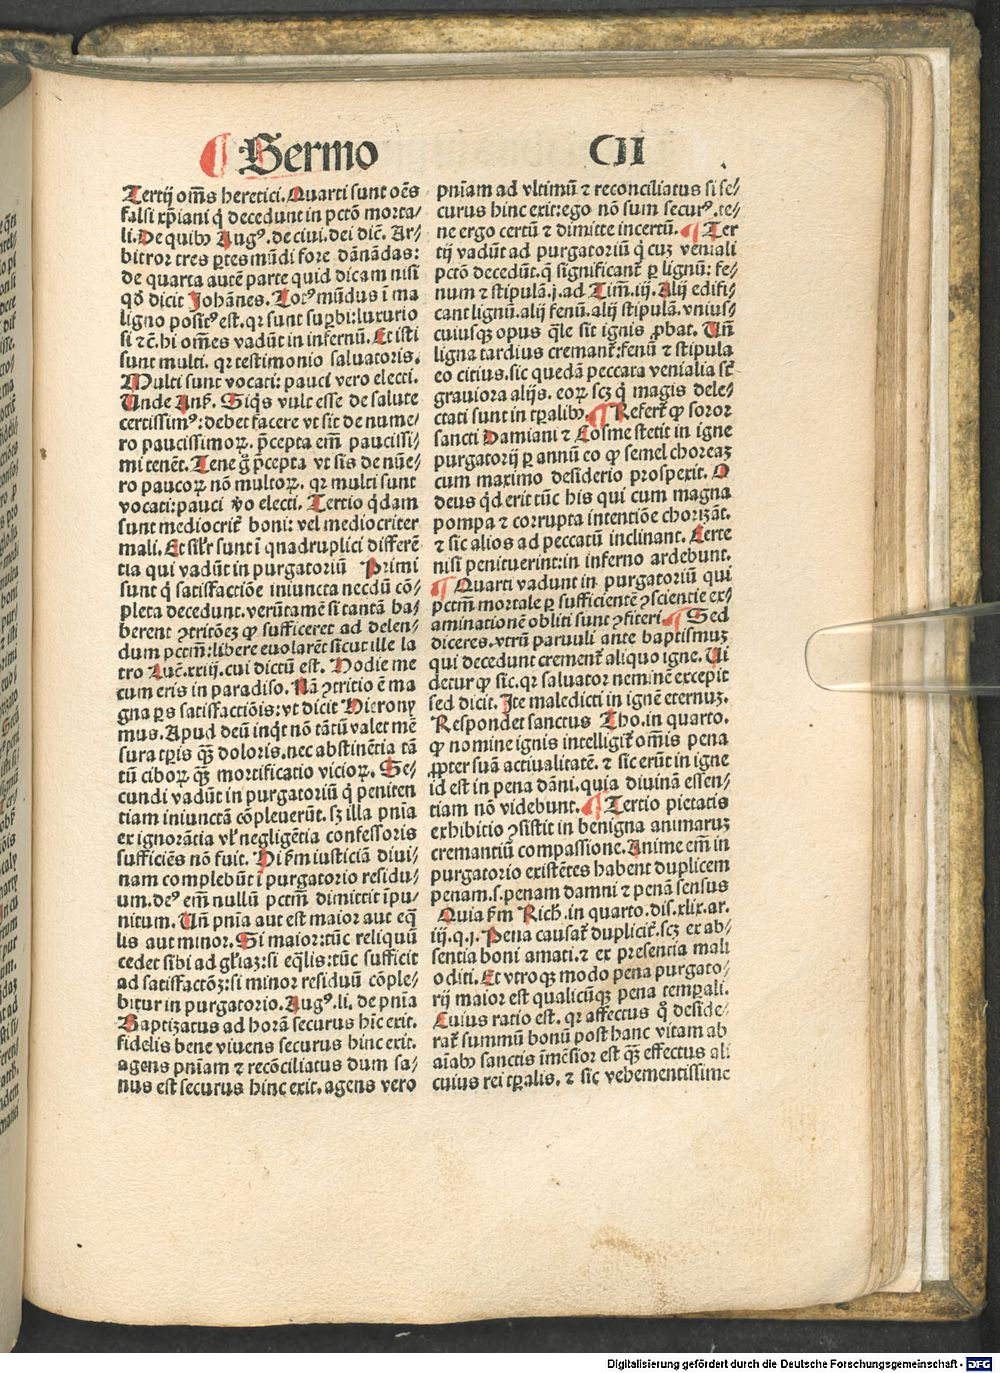 ¶ Sermo CII
Tertij om̄s heretici. Quarti sunt oēs
falsi xp̄iani q̇ decedunt in pctō morta⸗
li. De quibꝰ Augꝰ. de ciui. dei dic̄. Ar⸗
bitror tres ꝑtes mūdi fore dānādas:
de quarta autē parte quid dicam nisi
qd̄ dicit Johānes. Totꝰ mūdus ī ma
ligno positꝰ est. qꝛ sunt suꝑbi: luxurio
si ⁊ c̄. hi om̄es vadūt in infernū. Et isti
sunt multi. qꝛ testimonio saluatoris.
Multi sunt vocati: pauci vero electi.
Unde Ansꝭ. Siq̇s vult esse de salute
certissimꝰ: debet facere vt sit de nume⸗
ro paucissimoꝝ. p̄cepta em̄ paucissi⸗
mi tenēt. Tene g̊ p̄cepta vt sis de nūe⸗
ro paucoꝝ nō multoꝝ. qꝛ multi sunt
vocati: pauci v̊o electi. Tertio q̇dam
sunt mediocrit̄ boni: vel mediocriter
mali. Et sil̄r sunt ī quadruplici differē
tia qui vadūt in purgatoriū Primi
sunt q̇ satisfactiōe iniuncta necdū cō⸗
pleta decedunt. verūtamē si tantā ha⸗
berent ↄtritōeꝫ ꝙ sufficeret ad delen⸗
dum pctm̄: libere euolarēt sicut ille la
tro Luc̄. xxiij. cui dictū est. Hodie me
cum eris in paradiso. Nā ↄtritio ē ma
gna ꝑs satisfactiōis: vt dicit Hierony
mus. Apud deū inq̇t nō tātū valet mē
sura tꝑis qꝫ̄ doloris. nec abstinētia tā
tū ciboꝝ qꝫ̄ mortificatio vicioꝝ. Se⸗
cundi vadūt in purgatoriū q̇ peniten
tiam iniunctā cōpleuerūt. sꝫ illa pnīa
ex ignorātia vl̄ negligētia confessoris
sufficiēs nō fuit. Hi ẜm iusticiā diui⸗
nam complebūt ī purgatorio residu⸗
um. deꝰ em̄ nullū pctm̄ dimittit īpu⸗
nitum. Un̄ pnīa aut est maior aut eq̄
lis aut minor. Si maior: tūc reliquū
cedet sibi ad gl̄iaꝫ: si eq̄lis: tūc sufficit
ad satisfactōꝫ: si minor residuū cōple⸗
bitur in purgatorio. Augꝰ. li. de pnīa
Baptizatus ad horā securus hīc exit.
fidelis bene viuens securus hinc exit.
agens pnīam ⁊ recōciliatus dum sa⸗
nus est securus hinc exit. agens vero
pnīam ad vltimū ⁊ reconciliatus si se⸗
curus hinc exit: ego nō sum securꝰ. te⸗
ne ergo certū ⁊ dimitte incertū. ¶ Ter
tij vadūt ad purgatoriū q̇ cuꝫ veniali
pctō decedūt. q̇ significant̄ ꝑ lignū: fe⸗
num ⁊ stipulā. j. ad Tim̄. iij. Alij edifi⸗
cant lignū. alij fenū. alij stipulā. vnius⸗
cuiusqꝫ opus q̄le sit ignis ꝓbat. Un̄
ligna tardius cremant̄: fenū ⁊ stipula
eo citius. sic quedā peccata venialia st̄
grauiora alijs. eoꝝ scꝫ q̇ magis dele⸗
ctati sunt in tꝑalibꝰ. ¶ Refert̄ ꝙ soror
sancti Damiani ⁊ Cosme stetit in igne
purgatorij ꝑ annū eo ꝙ semel choreaꝫ
cum maximo desiderio prospexit. O
deus q̇d erit tūc his qui cum magna
pompa ⁊ corrupta intentiōe chorizāt.
⁊ sic alios ad peccatū inclinant. Certe
nisi penituerint: in inferno ardebunt.
¶ Quarti vadunt in purgatoriū qui
pctm̄ mortale ꝑ sufficientē ↄscientie ex⸗
aminationē obliti sunt ↄfiteri. ¶ Sed
diceres. vtrū paruuli ante baptismuꝫ
qui decedunt crement̄ aliquo igne. Ui
detur ꝙ sic. qꝛ saluator neminē excepit
sed dicit. Ite maledicti in ignē eternuꝫ.
Respondet sanctus Tho. in quarto.
ꝙ nomine ignis intelligit̄ om̄is pena
ꝓpter suā actiualitatē. ⁊ sic erūt in igne
id est in pena dāni. quia diuinā essen⸗
tiam nō videbunt. ¶ Tertio pietatis
exhibitio ↄsistit in benigna animaruꝫ
cremantiū compassione. Anime em̄ in
purgatorio existētes habent duplicem
penam. s. penam damni ⁊ penā sensus
Quia ẜm Rich̄. in quarto. dis. xlix. ar.
iij. q. j. Pena causat̄ duplicit̄. scꝫ ex ab⸗
sentia boni amati. ⁊ ex presentia mali
oditi. Et vtroqꝫ modo pena purgato⸗
rij maior est qualicūqꝫ pena temꝑali.
Cuius ratio est. qꝛ affectus q̊ deside⸗
rat̄ summū bonū post hanc vitam ab
aīabꝰ sanctis īmēsior est qꝫ̄ effectus ali
cuius rei tꝑalis. ⁊ sic vehementissime
Digitalisierung gefördert durch die Deutsche Forschungsgemeinschaft - DFG